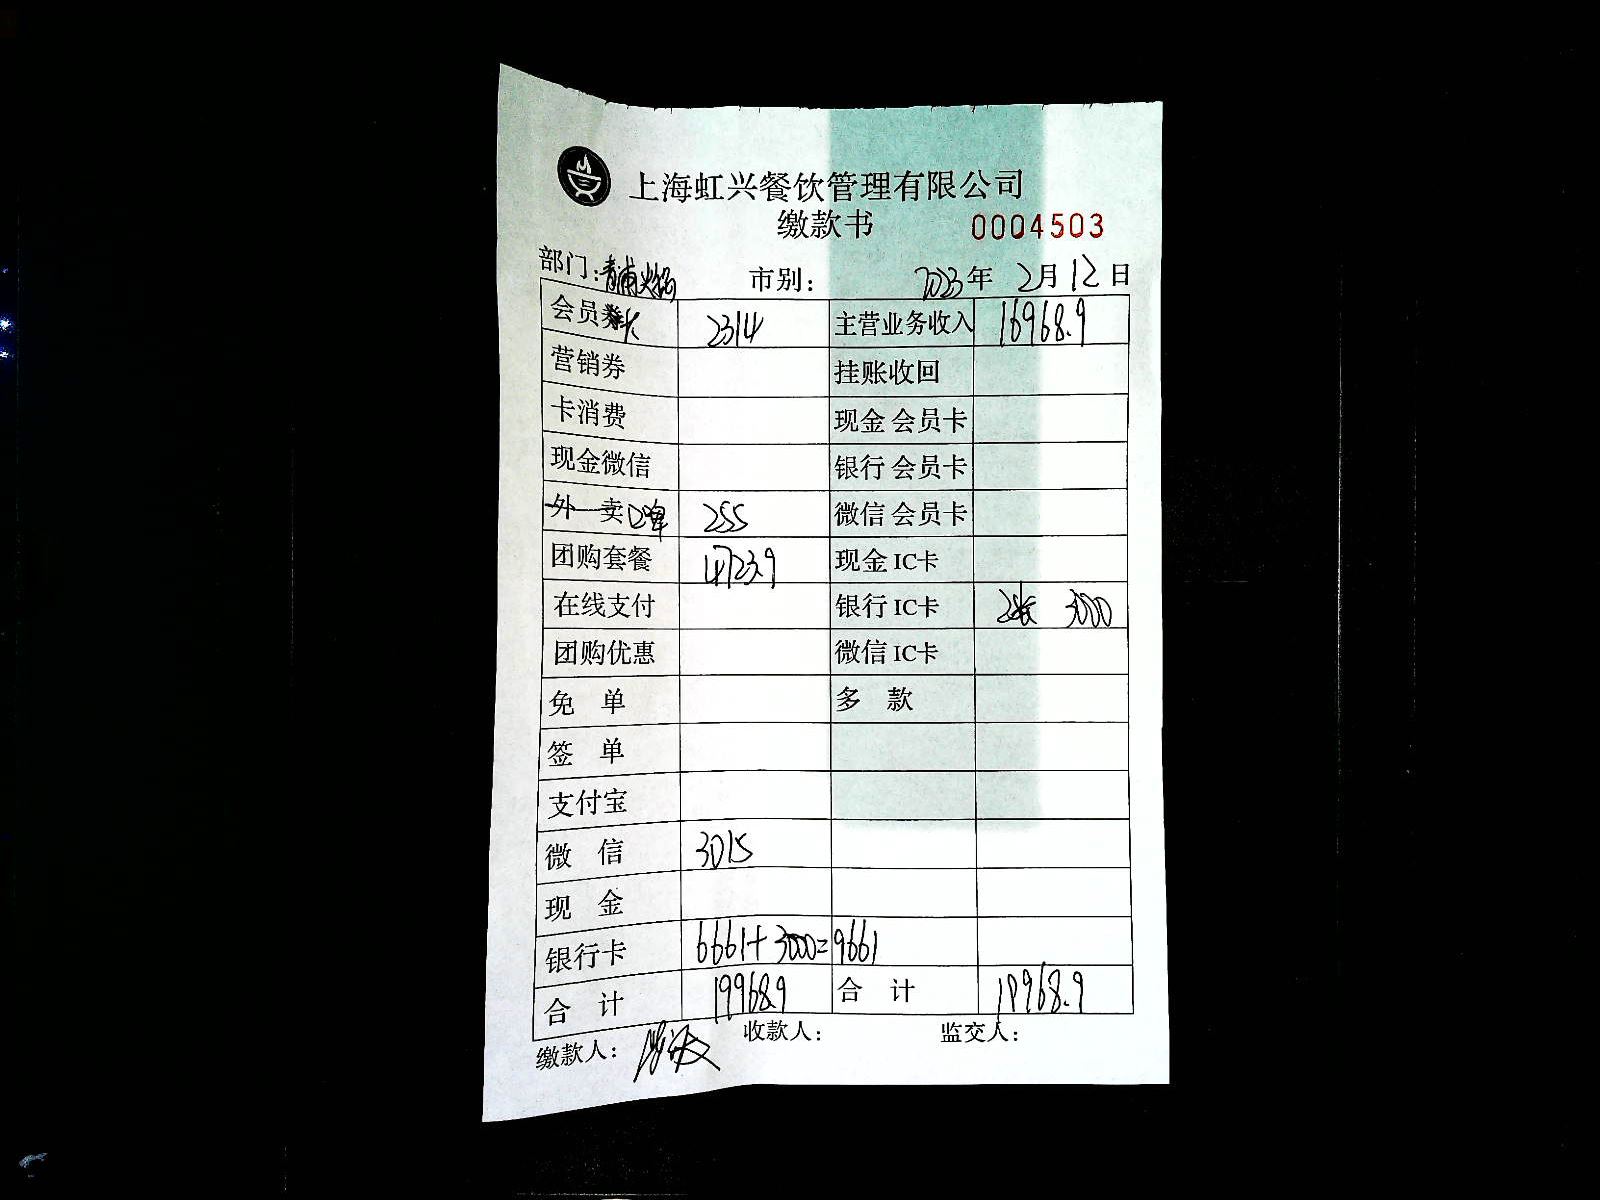 上海虹兴餐饮管理有限公司
缴款书 0004503
部门：青浦火锅 市别： 2023年 2月12日
会员卡 2314 主营业务收入 16968.9
营销券 挂账收回
卡消费 现金 会员卡
现金微信 银行 会员卡
外 卖 口碑 255 微信 会员卡
团购套餐 4723.9 现金 IC卡
在线支付 银行 IC卡 2张 3000
团购优惠 微信 IC卡
免 单 多 款
签 单
支付宝
微 信 3015
现 金
银行卡 6661+3000=9661
合 计 19968.9 合 计 19968.9
缴款人： 收款人： 监交人：